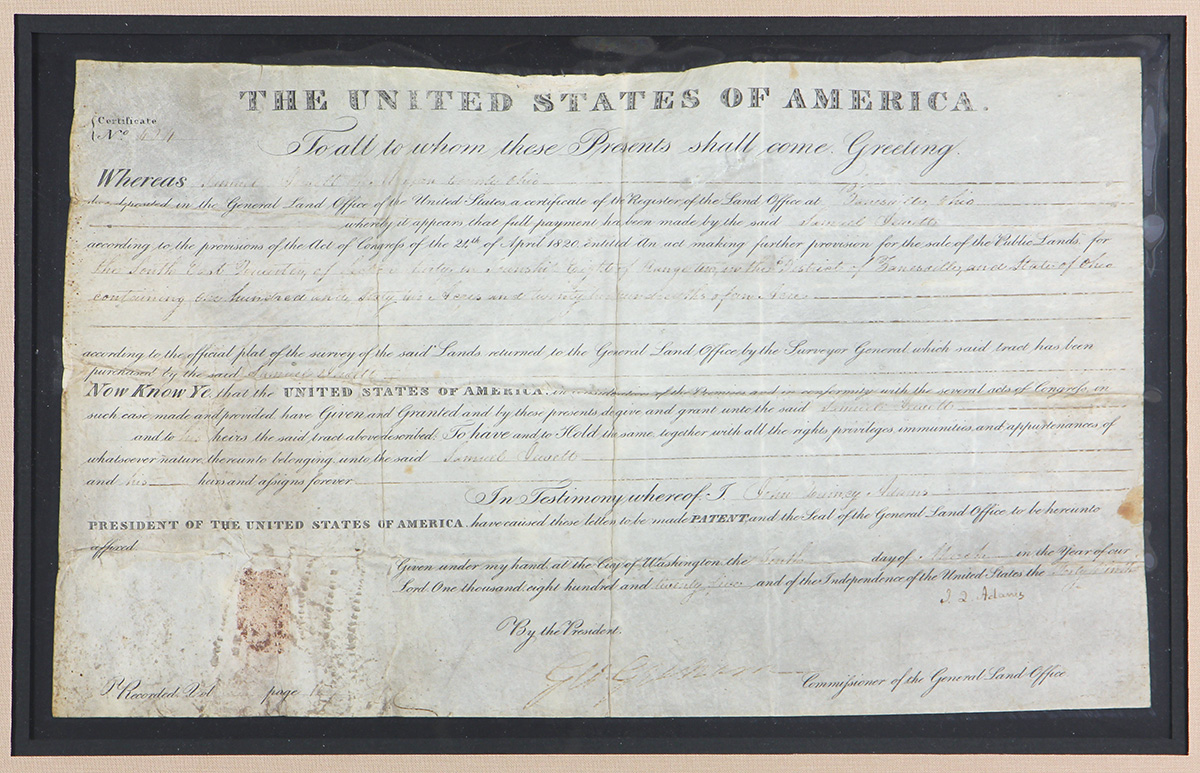 THE UNITED STATES OF AMERICA.
Certificate
No. 424
To all to whom these Presents shall come Greeting.
Whereas Samuel of County Ohio
deposited in the General Land Office of the United States a certificate of the Register of the Land Office at Zanesville Ohio
whereby it appears that full payment has been made by the said Samuel
according to the provisions of the Act of Congress of the 24th of April 1820, entitled An act making further provision for the sale of the Public Lands, for
the South East Quarter of in Township Eight of Range in the District of Zanesville, and State of Ohio
containing One hundred and Sixty Acres and twenty hundredths of an Acre
according to the official plat of the survey of the said Lands returned to the General Land Office by the Surveyor General which said tract has been
purchased by the said Samuel
Now Know Ye that the UNITED STATES OF AMERICA, in consideration of the Premises and in conformity with the several acts of Congress, in
such case made and provided have Given and Granted and by these presents do give and grant unto the said Samuel
and to his heirs the said tract above described: To have and to Hold the same, together with all the rights, privileges, immunities, and appurtenances of
whatsoever nature, thereunto belonging, unto the said Samuel
and his heirs and assigns forever.
In Testimony whereof, I, John Quincy Adams
PRESIDENT OF THE UNITED STATES OF AMERICA, have caused these letters to be made PATENT, and the Seal of the General Land Office to be hereunto
affixed
Given under my hand, at the City of Washington the tenth day of March in the Year of our
Lord One thousand, eight hundred and twenty and of the Independence of the United States the forty ninth
J. Q. Adams
By the President.
Commissioner of the General Land Office
Recorded Vol page